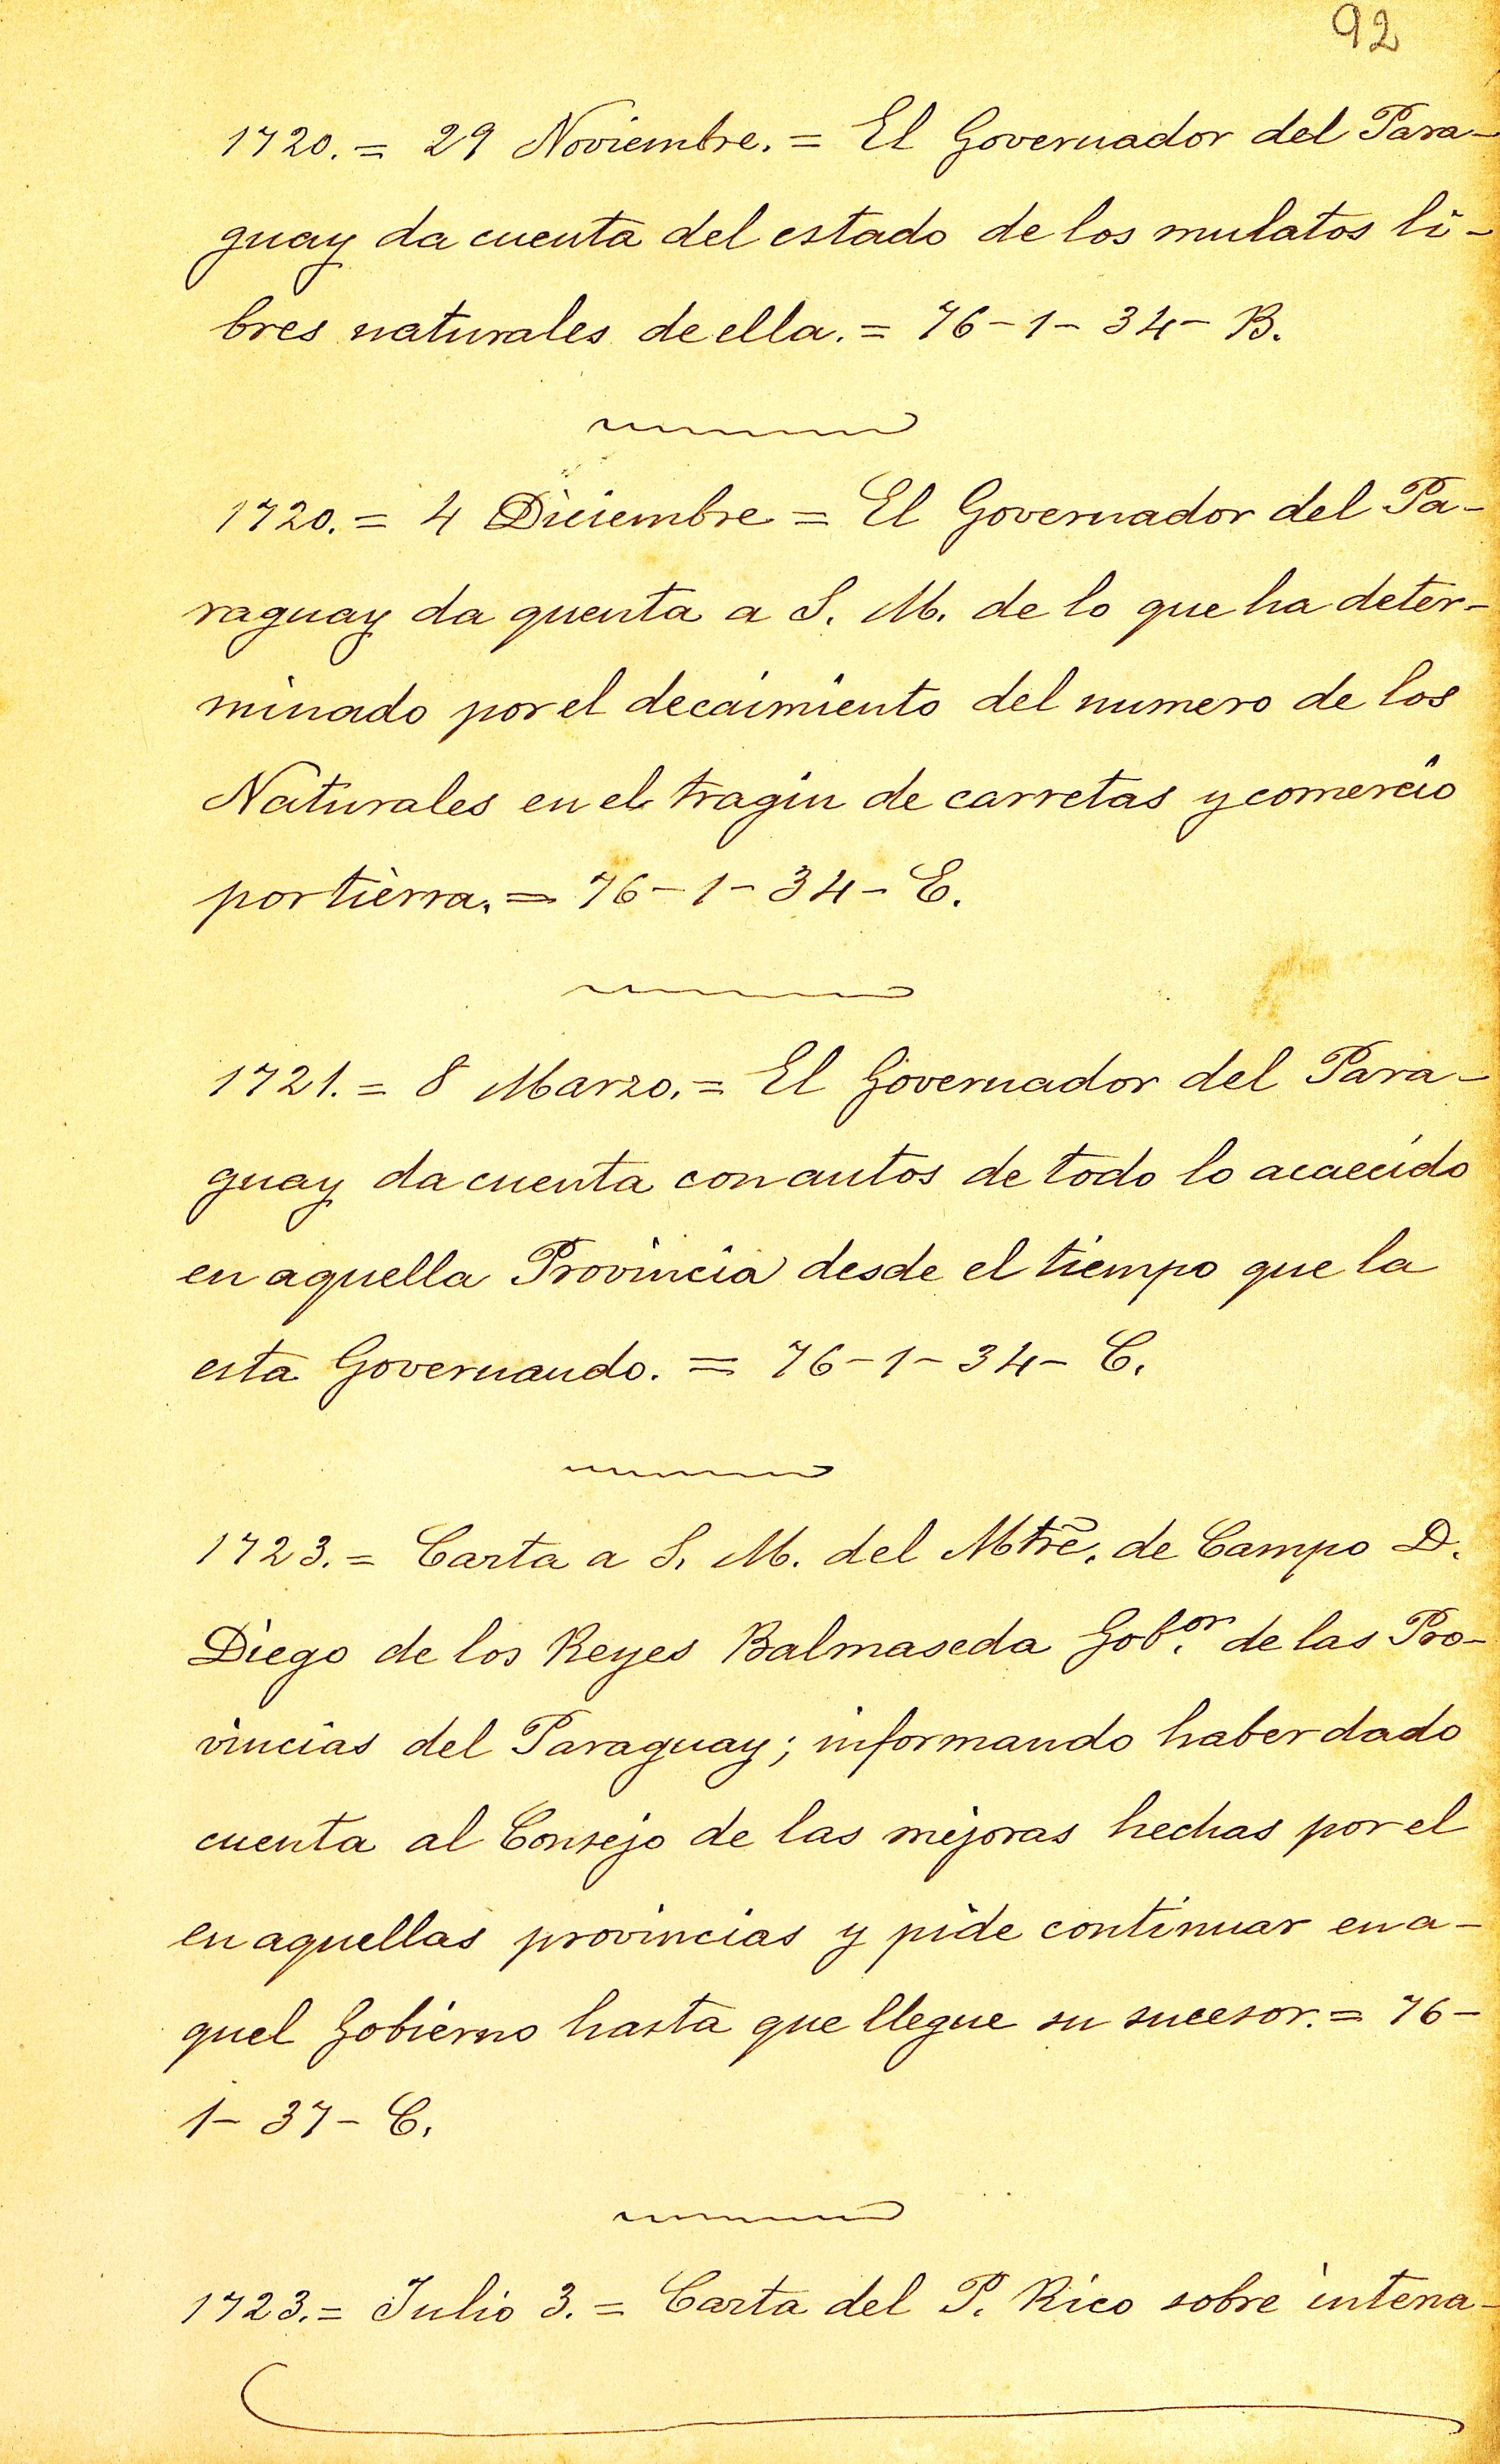 92
1720. = 29 Noviembre. = El Governador del Para-
guay da cuenta del estado de los mulatos li-
bres naturales de ella. = 76-1-34-B.
1720. = 4 Diciembre = El Governador del Pa-
raguay da quenta a S. M. de lo que ha deter-
minado por el decaimiento del numero de los
Naturales en el tragin de carretas y comercio
por tierra. = 76-1-34-E.
1721. = 8 Marzo. = El Governador del Para-
guay da cuenta con autos de todo lo acaecido
en aquella Provincia desde el tiempo que la
esta Governando. = 76-1-34-C.
1723. = Carta a S. M. del Mtrẽ. de Campo D.
Diego de los Reyes Balmaseda Gob.or de las Pro-
vincias del Paraguay; informando haber dado
cuenta al Consejo de las mejoras hechas por el
en aquellas provincias y pide continuar en a-
quel Gobierno hasta que llegue su sucesor. = 76-
1-37-C.
1723. = Julio 3. = Carta del P. Rico sobre intena-